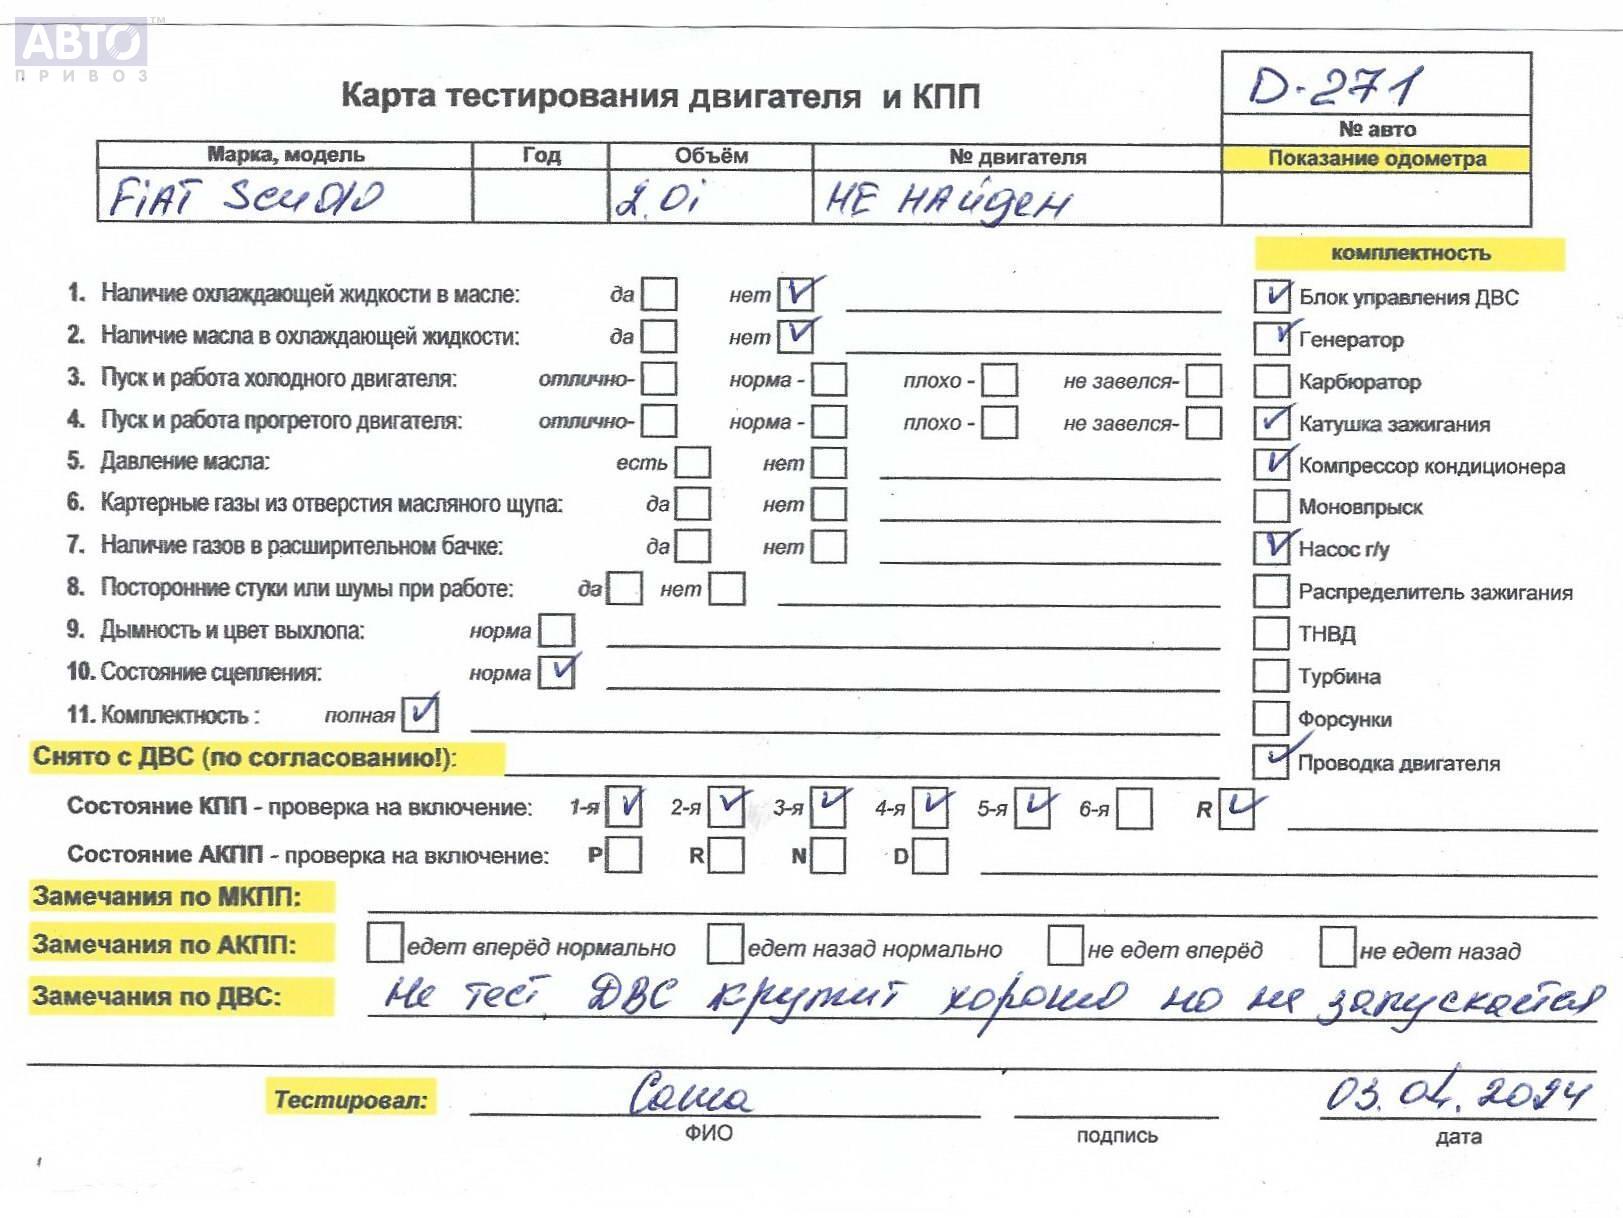 АВТО™
ПРИВОЗ
Карта тестирования двигателя и КПП
D-271
№ авто
Марка, модель Год Объём № двигателя Показание одометра
FiAT Scudo 2.0i НЕ НАЙДЕН
комплектность
1. Наличие охлаждающей жидкости в масле: да нет ✓
✓ Блок управления ДВС
2. Наличие масла в охлаждающей жидкости: да нет ✓
✓ Генератор
3. Пуск и работа холодного двигателя: отлично- норма - плохо - не завелся-
Карбюратор
4. Пуск и работа прогретого двигателя: отлично- норма - плохо - не завелся-
✓ Катушка зажигания
5. Давление масла: есть нет
✓ Компрессор кондиционера
6. Картерные газы из отверстия масляного щупа: да нет
Моновпрыск
7. Наличие газов в расширительном бачке: да нет
✓ Насос г/у
8. Посторонние стуки или шумы при работе: да нет
Распределитель зажигания
9. Дымность и цвет выхлопа: норма
ТНВД
10. Состояние сцепления: норма ✓
Турбина
11. Комплектность : полная ✓
Форсунки
Снято с ДВС (по согласованию!):
✓ Проводка двигателя
Состояние КПП - проверка на включение: 1-я ✓ 2-я ✓ 3-я ✓ 4-я ✓ 5-я ✓ 6-я R ✓
Состояние АКПП - проверка на включение: P R N D
Замечания по МКПП:
Замечания по АКПП: едет вперёд нормально едет назад нормально не едет вперёд не едет назад
Замечания по ДВС: Не тест, ДВС крутит хорошо но не запускается
Тестировал: Саша 03.04.2024
ФИО подпись дата